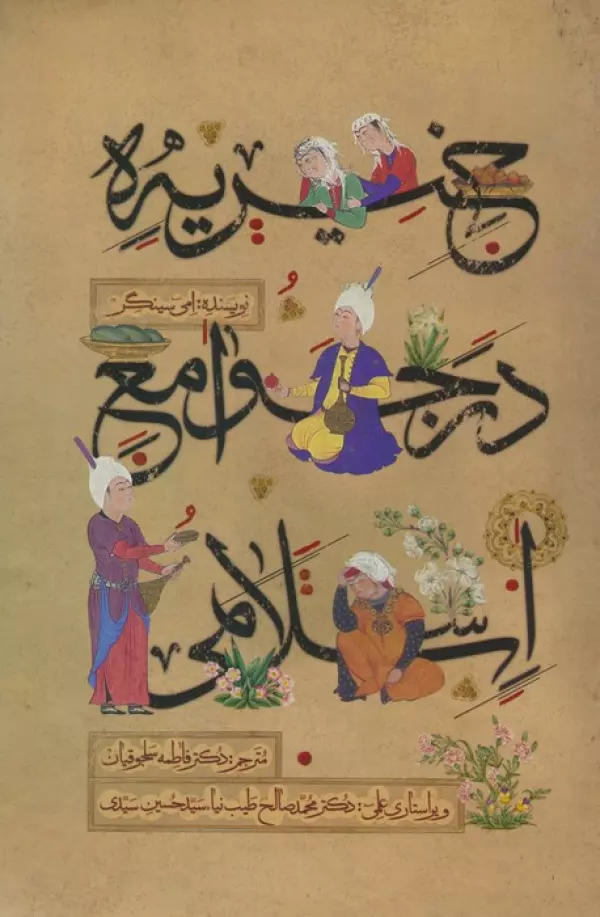 خیریه
نویسنده: امی سینگر
در جوامع
اسلامی
مترجم: دکتر فاطمه سلجوقیان
ویراستاری علمی: دکتر محمدصالح طیب نیا، سید حسین سیدی